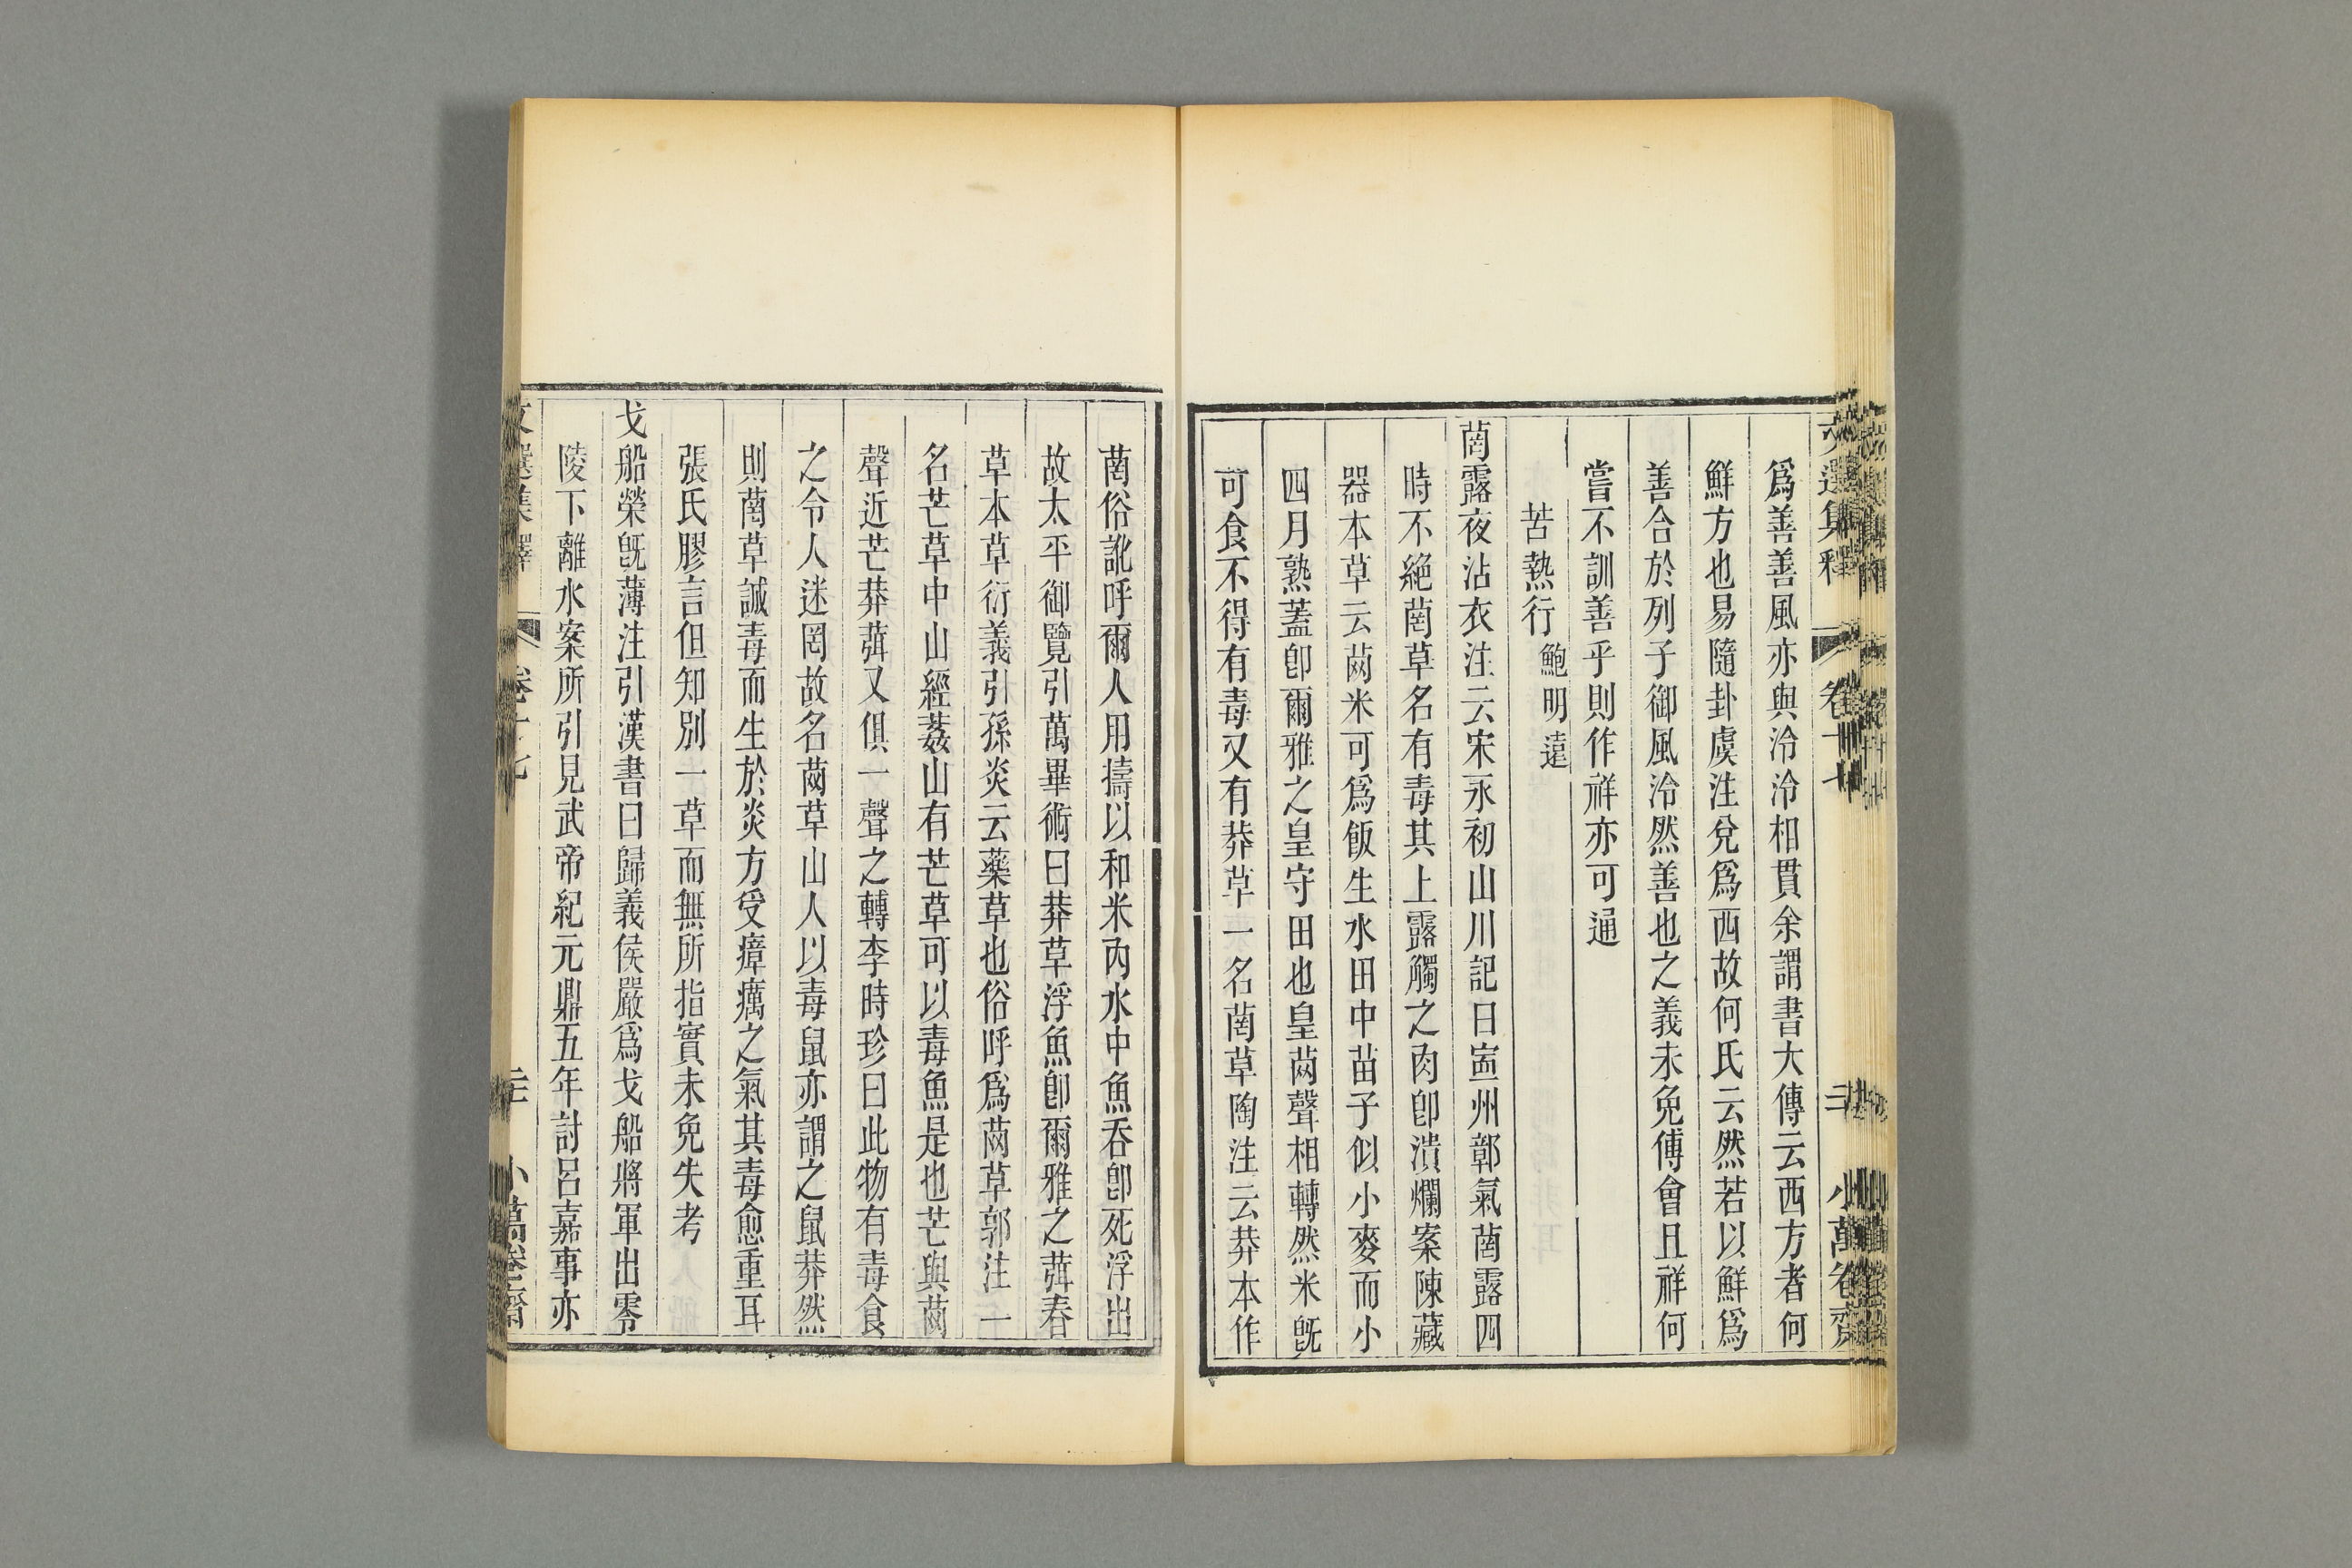 文選集釋 卷十七 小萬卷齋
爲善善風亦與泠泠相貫余謂書大傳云西方者何
鮮方也易隨卦虞注兌爲西故何氏云然若以鮮爲
善合於列子御風泠然善也之義未免傅會且祥何
嘗不訓善乎則作祥亦可通
苦熱行 鮑明遠
䓖露夜沾衣注云宋永初山川記曰寍州鄣氣䓖露四
時不絕䓖草名有毒其上露觸之肉卽潰爛案陳藏
器本草云䓖米可爲飯生水田中苗子似小麥而小
四月熟蓋卽爾雅之皇守田也皇䓖聲相轉然米旣
可食不得有毒又有莽草一名䓖草陶注云莽本作
䓖俗訛呼爾人用擣以和米內水中魚吞卽死浮出
故太平御覽引萬畢術曰莽草浮魚卽爾雅之葞春
草本草衍義引孫炎云藥草也俗呼爲䓖草郭注一
名芒草中山經葌山有芒草可以毒魚是也芒與䓖
聲近芒莽葞又俱一聲之轉李時珍曰此物有毒食
之令人迷罔故名䓖草山人以毒鼠亦謂之鼠莽然
則䓖草誠毒而生於炎方受瘴癘之氣其毒愈重耳
張氏膠言但知別一草而無所指實未免失考
戈船榮旣薄注引漢書曰歸義侯嚴爲戈船將軍出零
陵下離水案所引見武帝紀元鼎五年討呂嘉事亦
文選集釋 卷十七 小萬卷齋